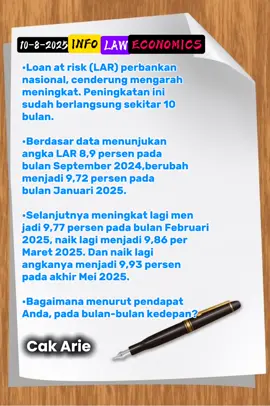 10-8-2025 INFO LAW ECONOMICS
•Loan at risk (LAR) perbankan
nasional, cenderung mengarah
meningkat. Peningkatan ini
sudah berlangsung sekitar 10
bulan.
•Berdasar data menunjukan
angka LAR 8,9 persen pada
bulan September 2024,berubah
menjadi 9,72 persen pada
bulan Januari 2025.
•Selanjutnya meningkat lagi men
jadi 9,77 persen pada bulan Februari
2025, naik lagi menjadi 9,86 per
Maret 2025. Dan naik lagi
angkanya menjadi 9,93 persen
pada akhir Mei 2025.
•Bagaimana menurut pendapat
Anda, pada bulan-bulan kedepan?
Cak Arie